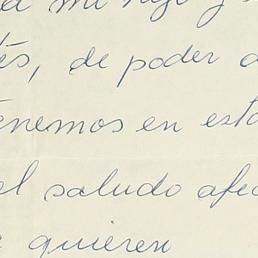 mi hijo y
és, de poder
enemos en est
el saludo afec
quieren